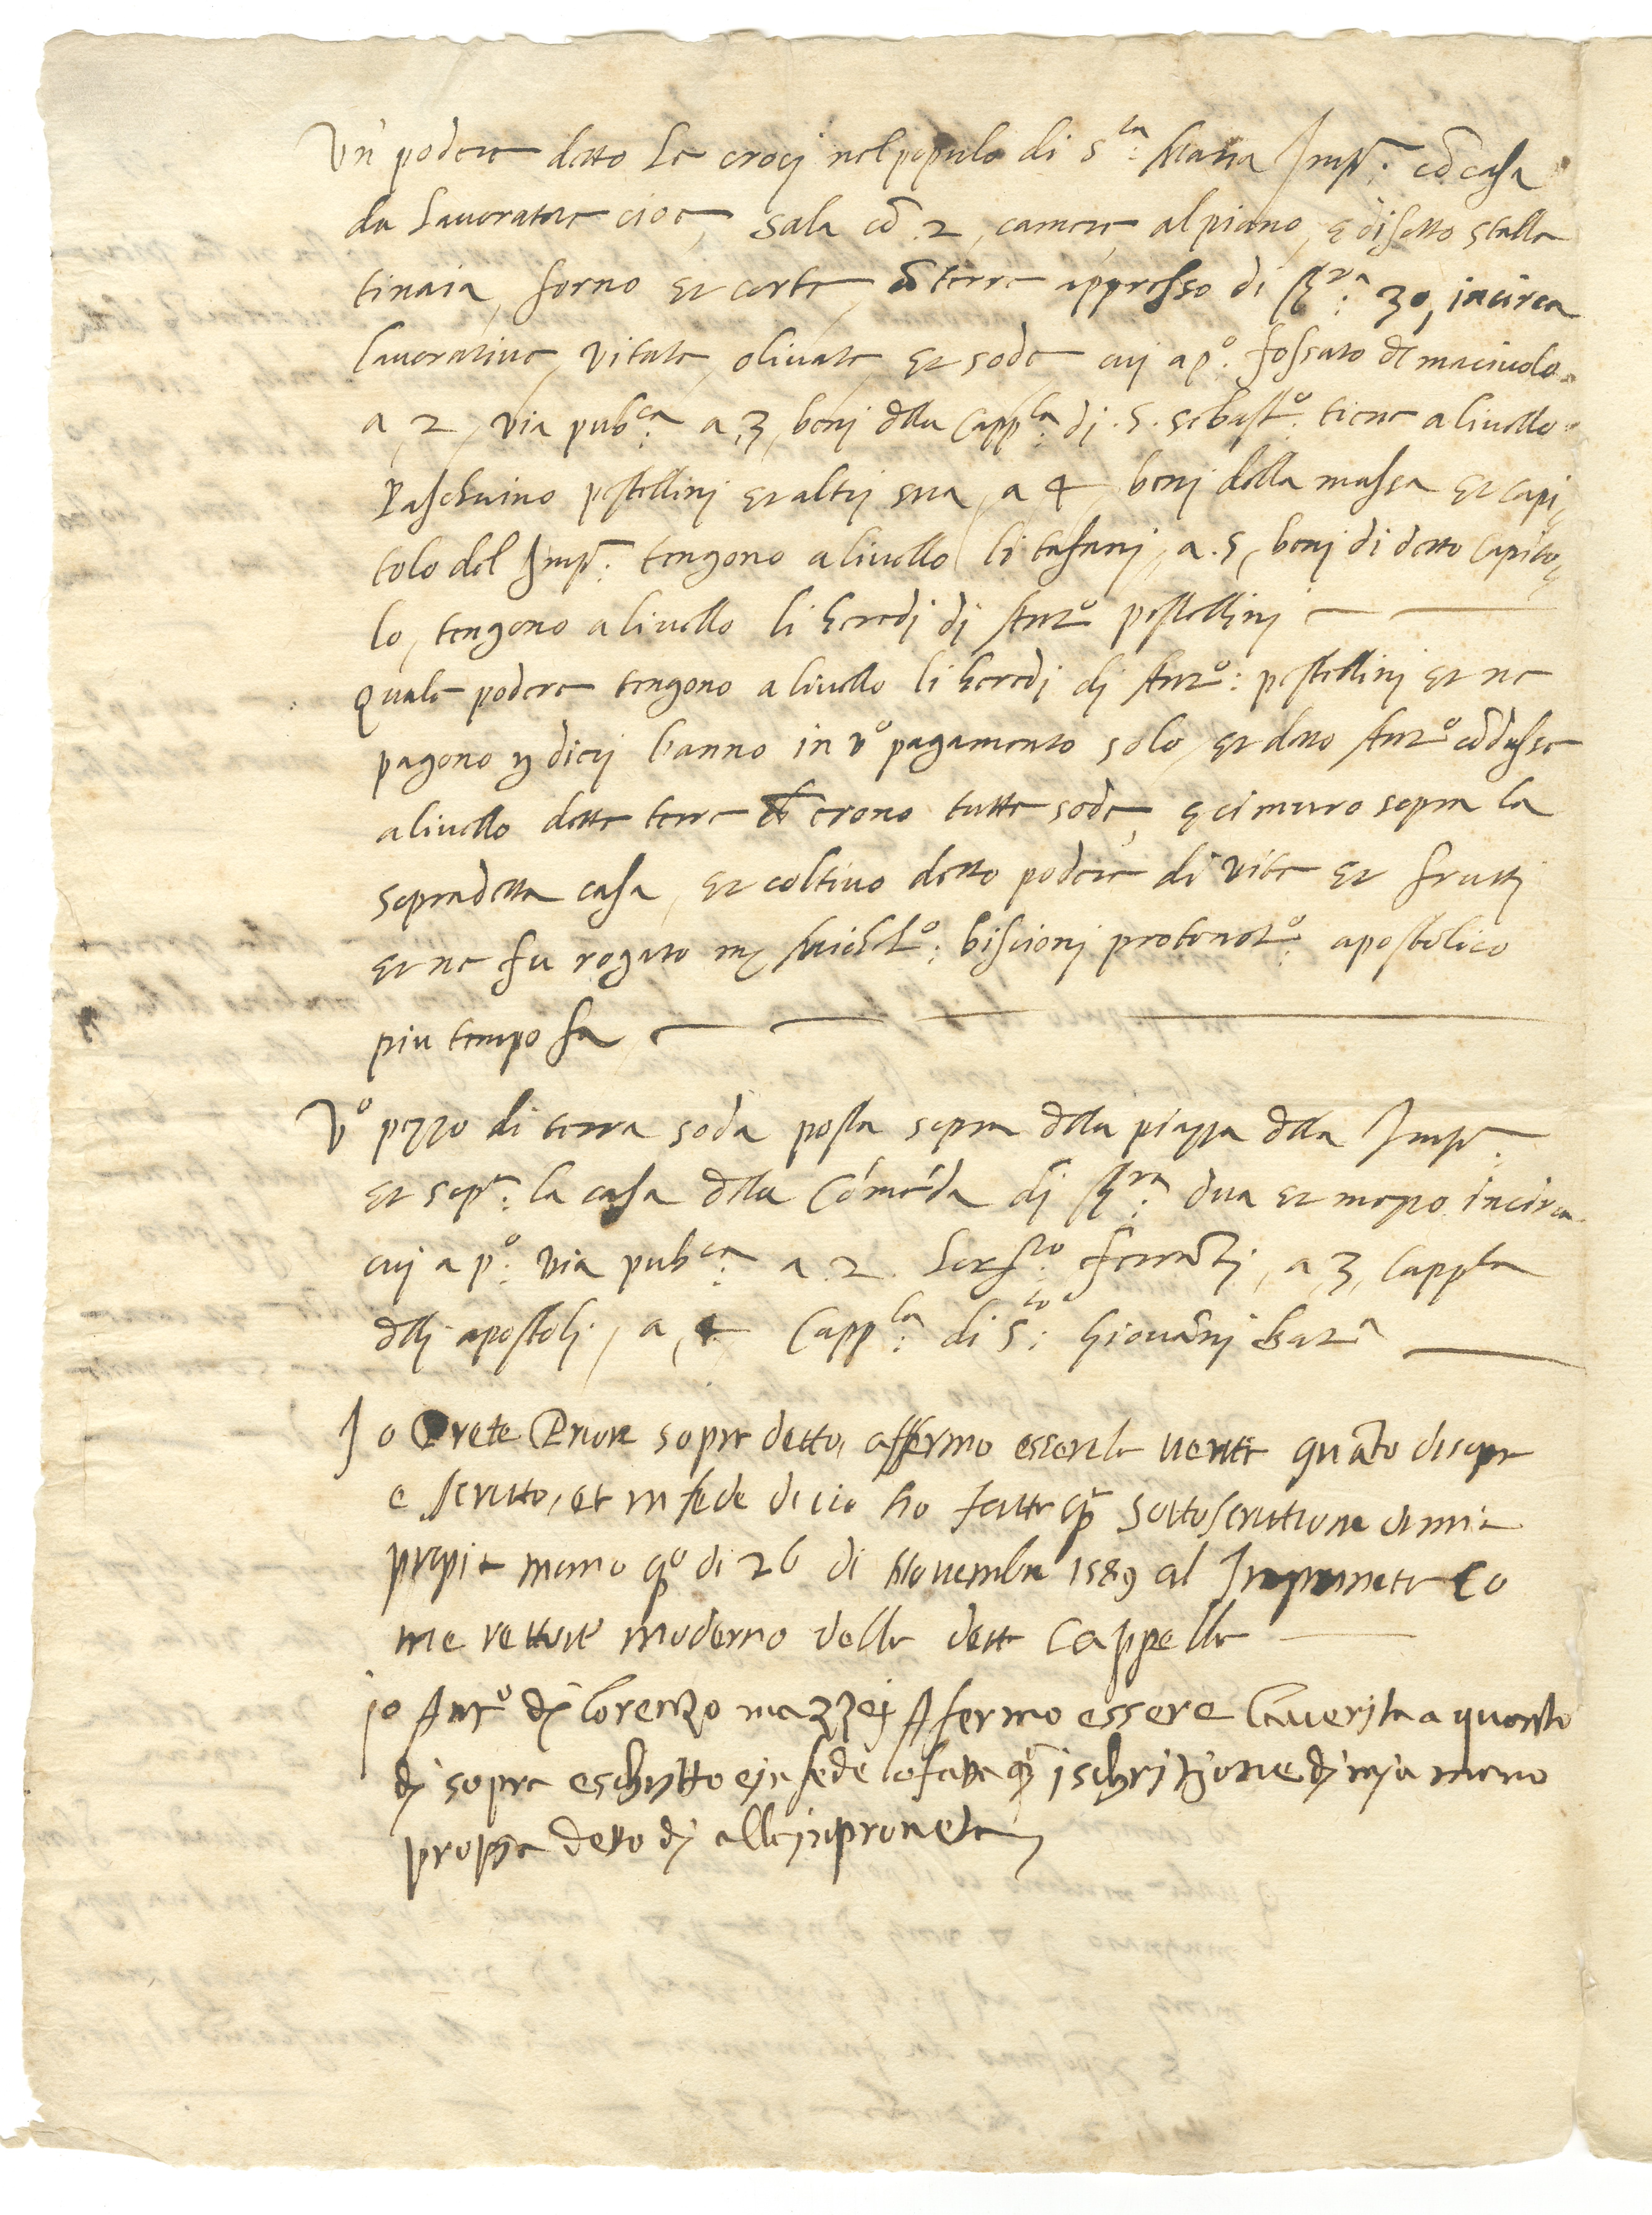 Un podere detto Le croci nel popolo di S.ta Maria Impr.ª cõ casa
da Lavoratore cioe, sala cõ 2, camere, al piano, e disotto stalla
tinaia, forno et corte, cõ terre appresso di stª.ra 30, incirca
lavorative, vitate, olivate, et sode cuj a pº. fossato di macivolo
a, 2, via pub.ca a, 3, benj dlla Capp.la dj. S. Sebastº. tiene a livello
Paschuino pestellinj et altrj sua, a 4, benj della massa et capi,
tolo del Impr.ª tengono a livello li tafanj, a. 5, benj di detto Capito,
lo, tengono a livello li heredj dj Antº pestellinj
Quale podere tengono a livello li heredj dj Antº: pestellinj et ne
pagono ỹ diecj l'anno in vº pagamento solo, et detto Antº cõdusse
a livello dette terre ch erono tutte sode, e ci muro sopra la
sopradetta casa, et coltivo detto podere di vite et fruttj
et ne fu rogato mẽ Michelº: biscionj protonotº. apostolico
piu tempo fa
Vº pezzo di terra soda posta sopra dlla piazza dlla Impr.ª
et sopr.ª la casa dlla Cõmẽda dj stª.ra dua et mezzo incirca
cuj a pº: via pub.ca a. 2. Lorº. ferrãtj, a, 3, Capp.la
dllj apostolj, a, 4 Capp.la di S.to: Giovãnj Batª
Io Prete Priore sopra detto, affermo essere la verità quãto disopra
e scritto, et in fede di cio ho fatta qª sottoscrittione di mia
propia mano qº di 26 di Novembre 1589 al Impruneta Co
me rettore moderno delle dette Cappelle
io Antº dj lorenzo mazzej Afermo essere la verita a quanto
dj sopra eschritto e in fede o fatta qª ischrizione dj mja mano
propia detto dj alla inpruneta